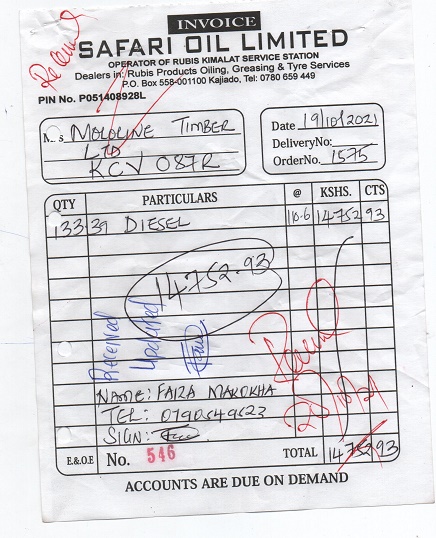 INVOICE
Received
SAFARI OIL LIMITED
OPERATOR OF RUBIS KIMALAT SERVICE STATION
Dealers in: Rubis Products Oiling, Greasing & Tyre Services
P.O. Box 558-001100 Kajiado, Tel: 0780 659 449
PIN No. P051408928L
M/s MOLOLINE TIMBER
LTD
KCV 087R
Date 19/10/2021
DeliveryNo:
OrderNo. 1575
QTY PARTICULARS @ KSHS. CTS
133.39 DIESEL 110.6 14752 93
14752.93
Received
Updated
Received
NAME: FAIZA MAKOKHA
TEL: 0790549623
SIGN:
E.&O.E No. 546 TOTAL 14752 93
ACCOUNTS ARE DUE ON DEMAND